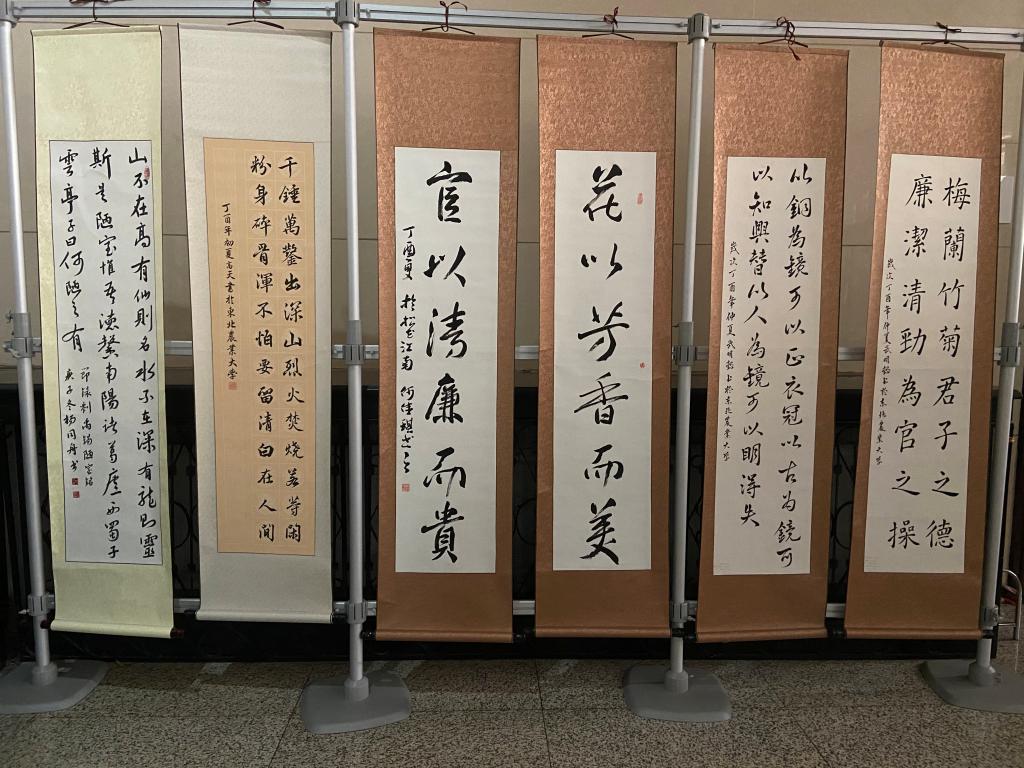 梅蘭竹菊君子之德
廉潔清勁為官之操
歲次丁酉年仲夏武明銘書於東北農業大學
以銅為鏡可以正衣冠以古為鏡可
以知興替以人為鏡可以明得失
歲次丁酉年仲夏武明銘書於東北農業大學
花以芳香而美
官以清廉而貴
丁酉夏於松花江南
千錘萬鑿出深山烈火焚燒若等閑
粉身碎骨渾不怕要留清白在人間
丁酉年初夏高天書於東北農業大學
山不在高有仙則名水不在深有龍則靈
斯是陋室惟吾德馨南陽諸葛廬西蜀子
雲亭子曰何陋之有
節錄劉禹錫陋室銘
庚子冬楊同舟書